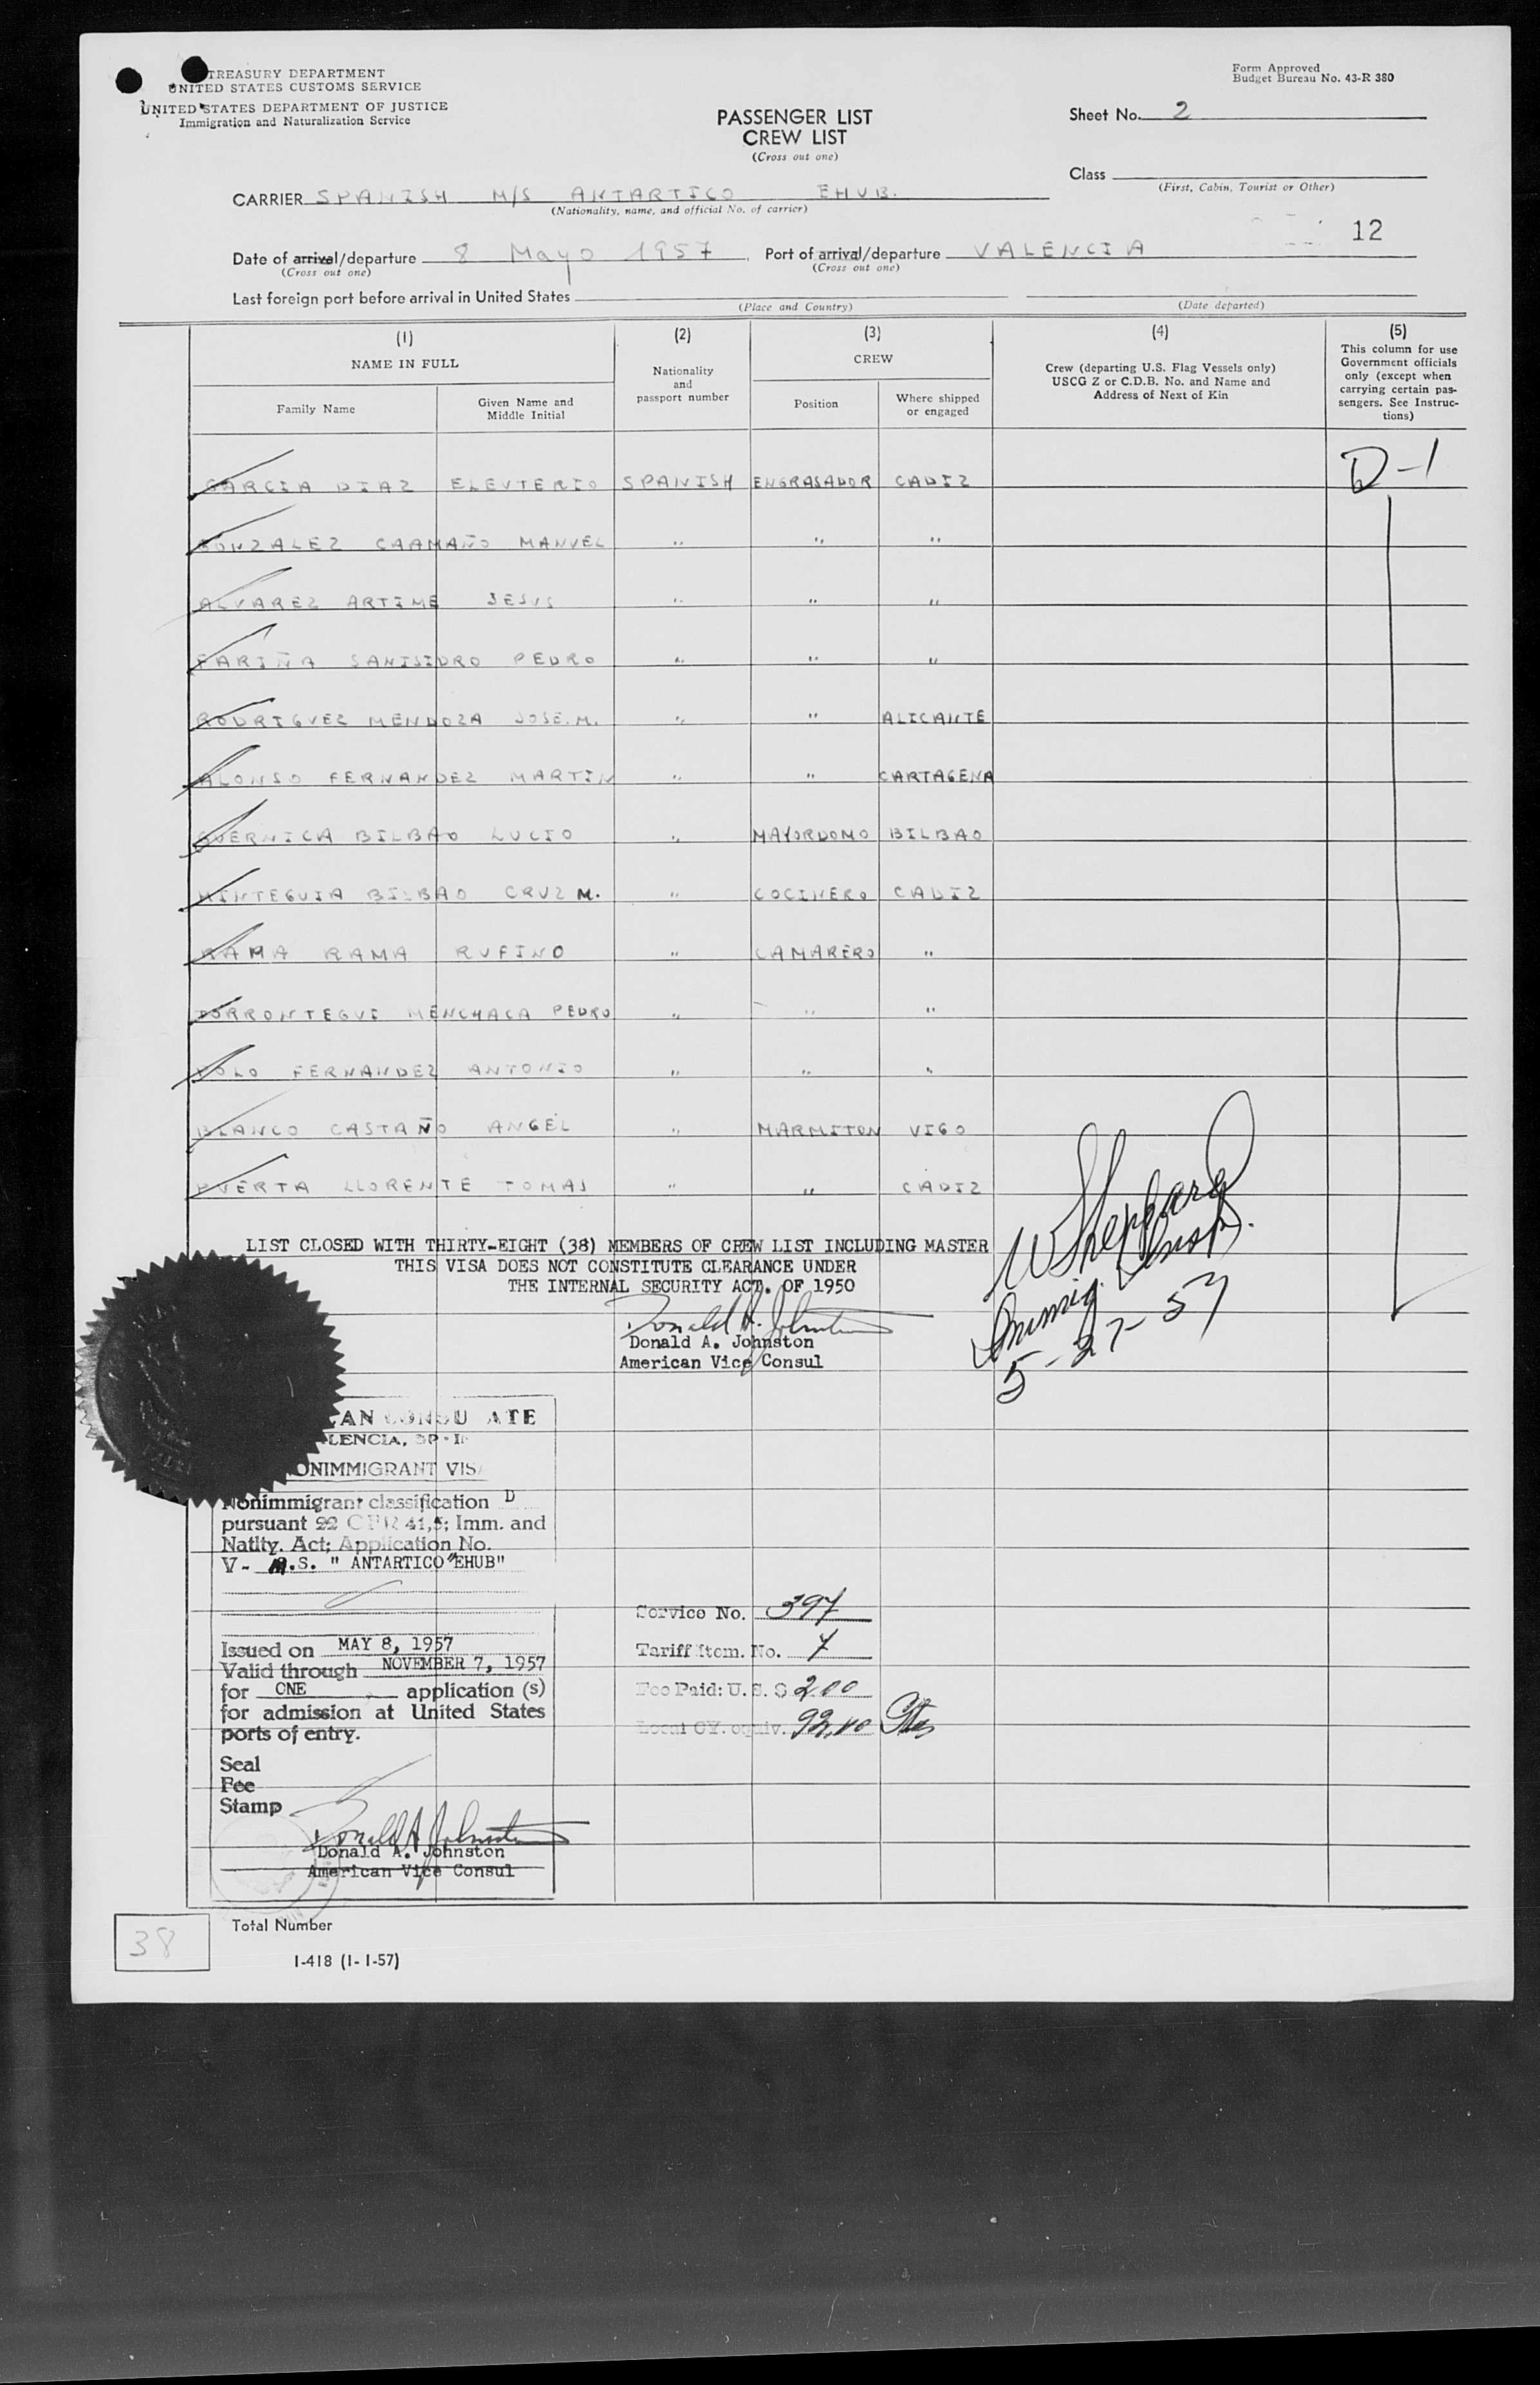 TREASURY DEPARTMENT
UNITED STATES CUSTOMS SERVICE
UNITED STATES DEPARTMENT OF JUSTICE
Immigration and Naturalization Service
Form Approved
Budget Bureau No. 43-R 380
PASSENGER LIST
CREW LIST
(Cross out one)
Sheet No. 2
Class
(First, Cabin, Tourist or Other)
CARRIER SPANISH M/S ANTARTICO EHUB.
(Nationality, name, and official No. of carrier)
12
Date of arrival/departure 8 Mayo 1957, Port of arrival/departure VALENCIA
(Cross out one) (Cross out one)
Last foreign port before arrival in United States
(Place and Country) (Date departed)
(1) (2) (3) (4) (5)
NAME IN FULL
Family Name
Given Name and
Middle Initial
Nationality
and
passport number
CREW
Position
Where shipped
or engaged
Crew (departing U.S. Flag Vessels only)
USCG Z or C.D.B. No. and Name and
Address of Next of Kin
This column for use
Government officials
only (except when
carrying certain pas-
sengers. See Instruc-
tions)
GARCIA DIAZ ELEUTERIO SPANISH ENGRASADOR CADIZ D-1
GONZALEZ CAAMAÑO MANUEL " " "
ALVAREZ ARTIME JESUS " " "
FARIÑA SANISIDRO PEDRO " " "
RODRIGUEZ MENDOZA JOSE.M. " " ALICANTE
ALONSO FERNANDEZ MARTIN " " CARTAGENA
GUERNICA BILBAO LUCIO " MAYORDOMO BILBAO
MINTEGUIA BILBAO CRUZ M. " COCINERO CADIZ
RAMA RAMA RUFINO " CAMARERO "
TORRONTEGUI MENCHACA PEDRO " " "
POLO FERNANDEZ ANTONIO " " "
BLANCO CASTAÑO ANGEL " MARMITON VIGO
PUERTA LLORENTE TOMAS " " CADIZ
LIST CLOSED WITH THIRTY-EIGHT (38) MEMBERS OF CREW LIST INCLUDING MASTER
THIS VISA DOES NOT CONSTITUTE CLEARANCE UNDER
THE INTERNAL SECURITY ACT. OF 1950
Donald A. Johnston
Donald A. Johnston
American Vice Consul
W Sheppard
Immig. Insp.
5-27-57
CAN CONSU ATE
LENCIA, SP I
ONIMMIGRANT VIS
Nonimmigrant classification D
pursuant 22 CFR 41,5; Imm. and
Natlty. Act; Application No.
V- M.S. " ANTARTICO "EHUB"
Issued on MAY 8, 1957
Valid through NOVEMBER 7, 1957
for ONE application (s)
for admission at United States
ports of entry.
Seal
Fee
Stamp
Donald A. Johnston
Donald A. Johnston
American Vice Consul
Service No. 397
Tariff Item. No. 7
Fee Paid: U. S. $ 2.00
Local CY. equiv. 92,40 Ptas
38
Total Number
I-418 (1-1-57)